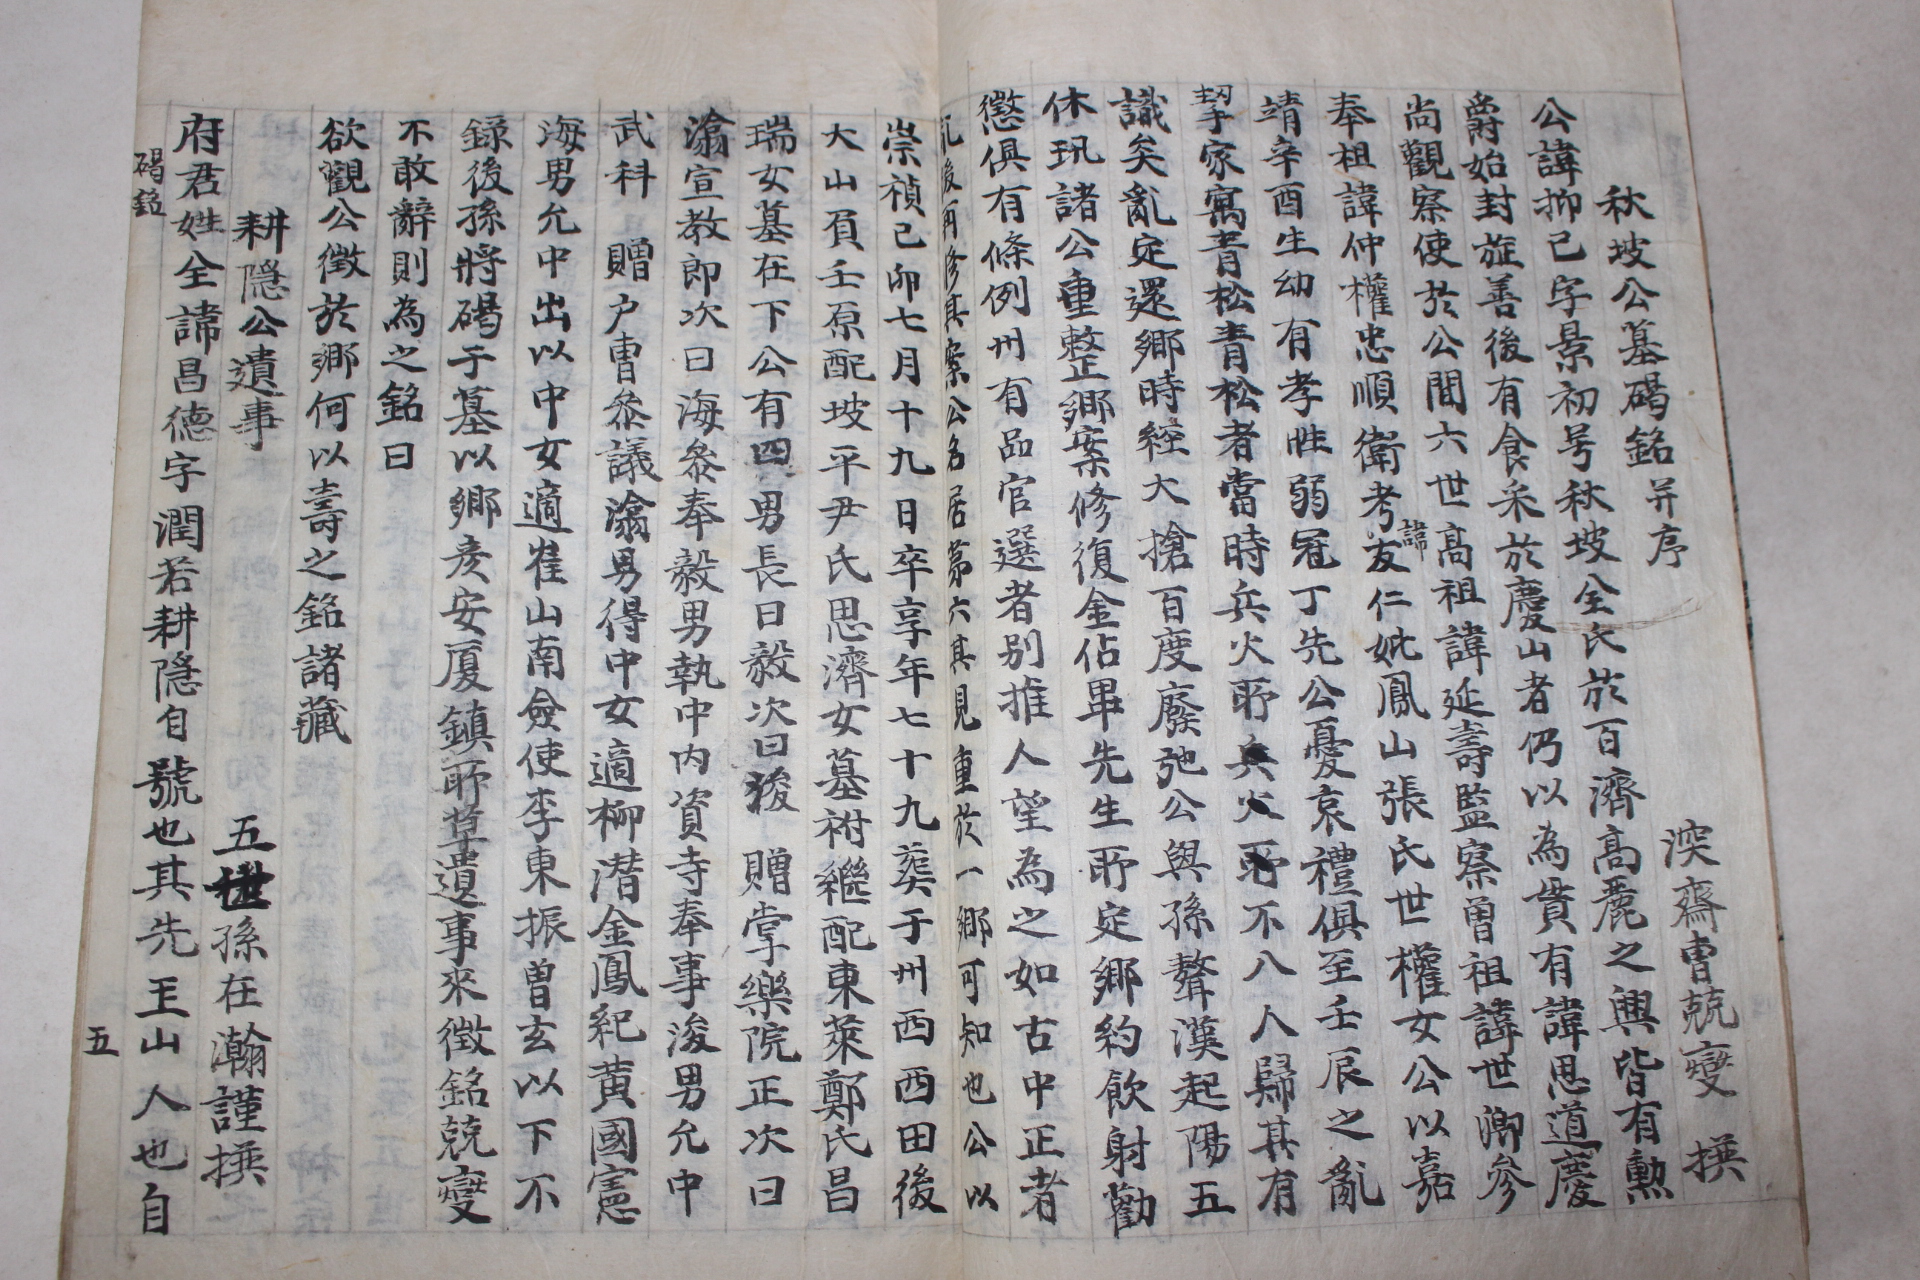 秋坡公墓碣銘并序
深齋曺兢燮 撰
公諱抑己字景初号秋坡全氏於百濟高麗之興皆有勲
爵始封旌善後有食采於慶山者仍以為貫有諱思道慶
尚觀察使於公間六世高祖諱延壽監察曾祖諱世卿參
奉祖諱仲權忠順衛考諱友仁妣鳳山張氏世權女公以嘉
靖辛酉生幼有孝性弱冠丁先公憂哀禮俱至壬辰之亂
挈家寓青松青松者當時兵火所不入人歸其有
識矣亂定還鄉時經大搶百度廢弛公與孫聱漢起陽五
休玑諸公重整鄉案修復金佔畢先生所定鄉約飲射勸
懲俱有條例州有品官選者别推人望為之如古中正者
亂後再修其案公名居第六其見重於一鄉可知也公以
崇禎己卯七月十九日卒享年七十九葬于州西酉田後
大山負壬原配坡平尹氏思濟女墓祔繼配東萊鄭氏昌
瑞女墓在下公有四男長曰毅次曰浚 贈掌樂院正次曰
滃宣教郎次曰海叅奉毅男執中内資寺奉事浚男允中
武科 贈户曺叅議滃男得中女適柳潜金鳳紀黄國憲
海男允中出以中女適崔山南僉使李東振曾玄以下不
録後孫將碣于墓以鄉彦安厦鎮所草遺事來徵銘兢燮
不敢辭則為之銘曰
欲觀公徵於鄉何以壽之銘諸藏
耕隐公遺事
五世孫在瀚謹撰
府君姓全諱昌德字潤若耕隐自號也其先王山人也自
碣銘
五